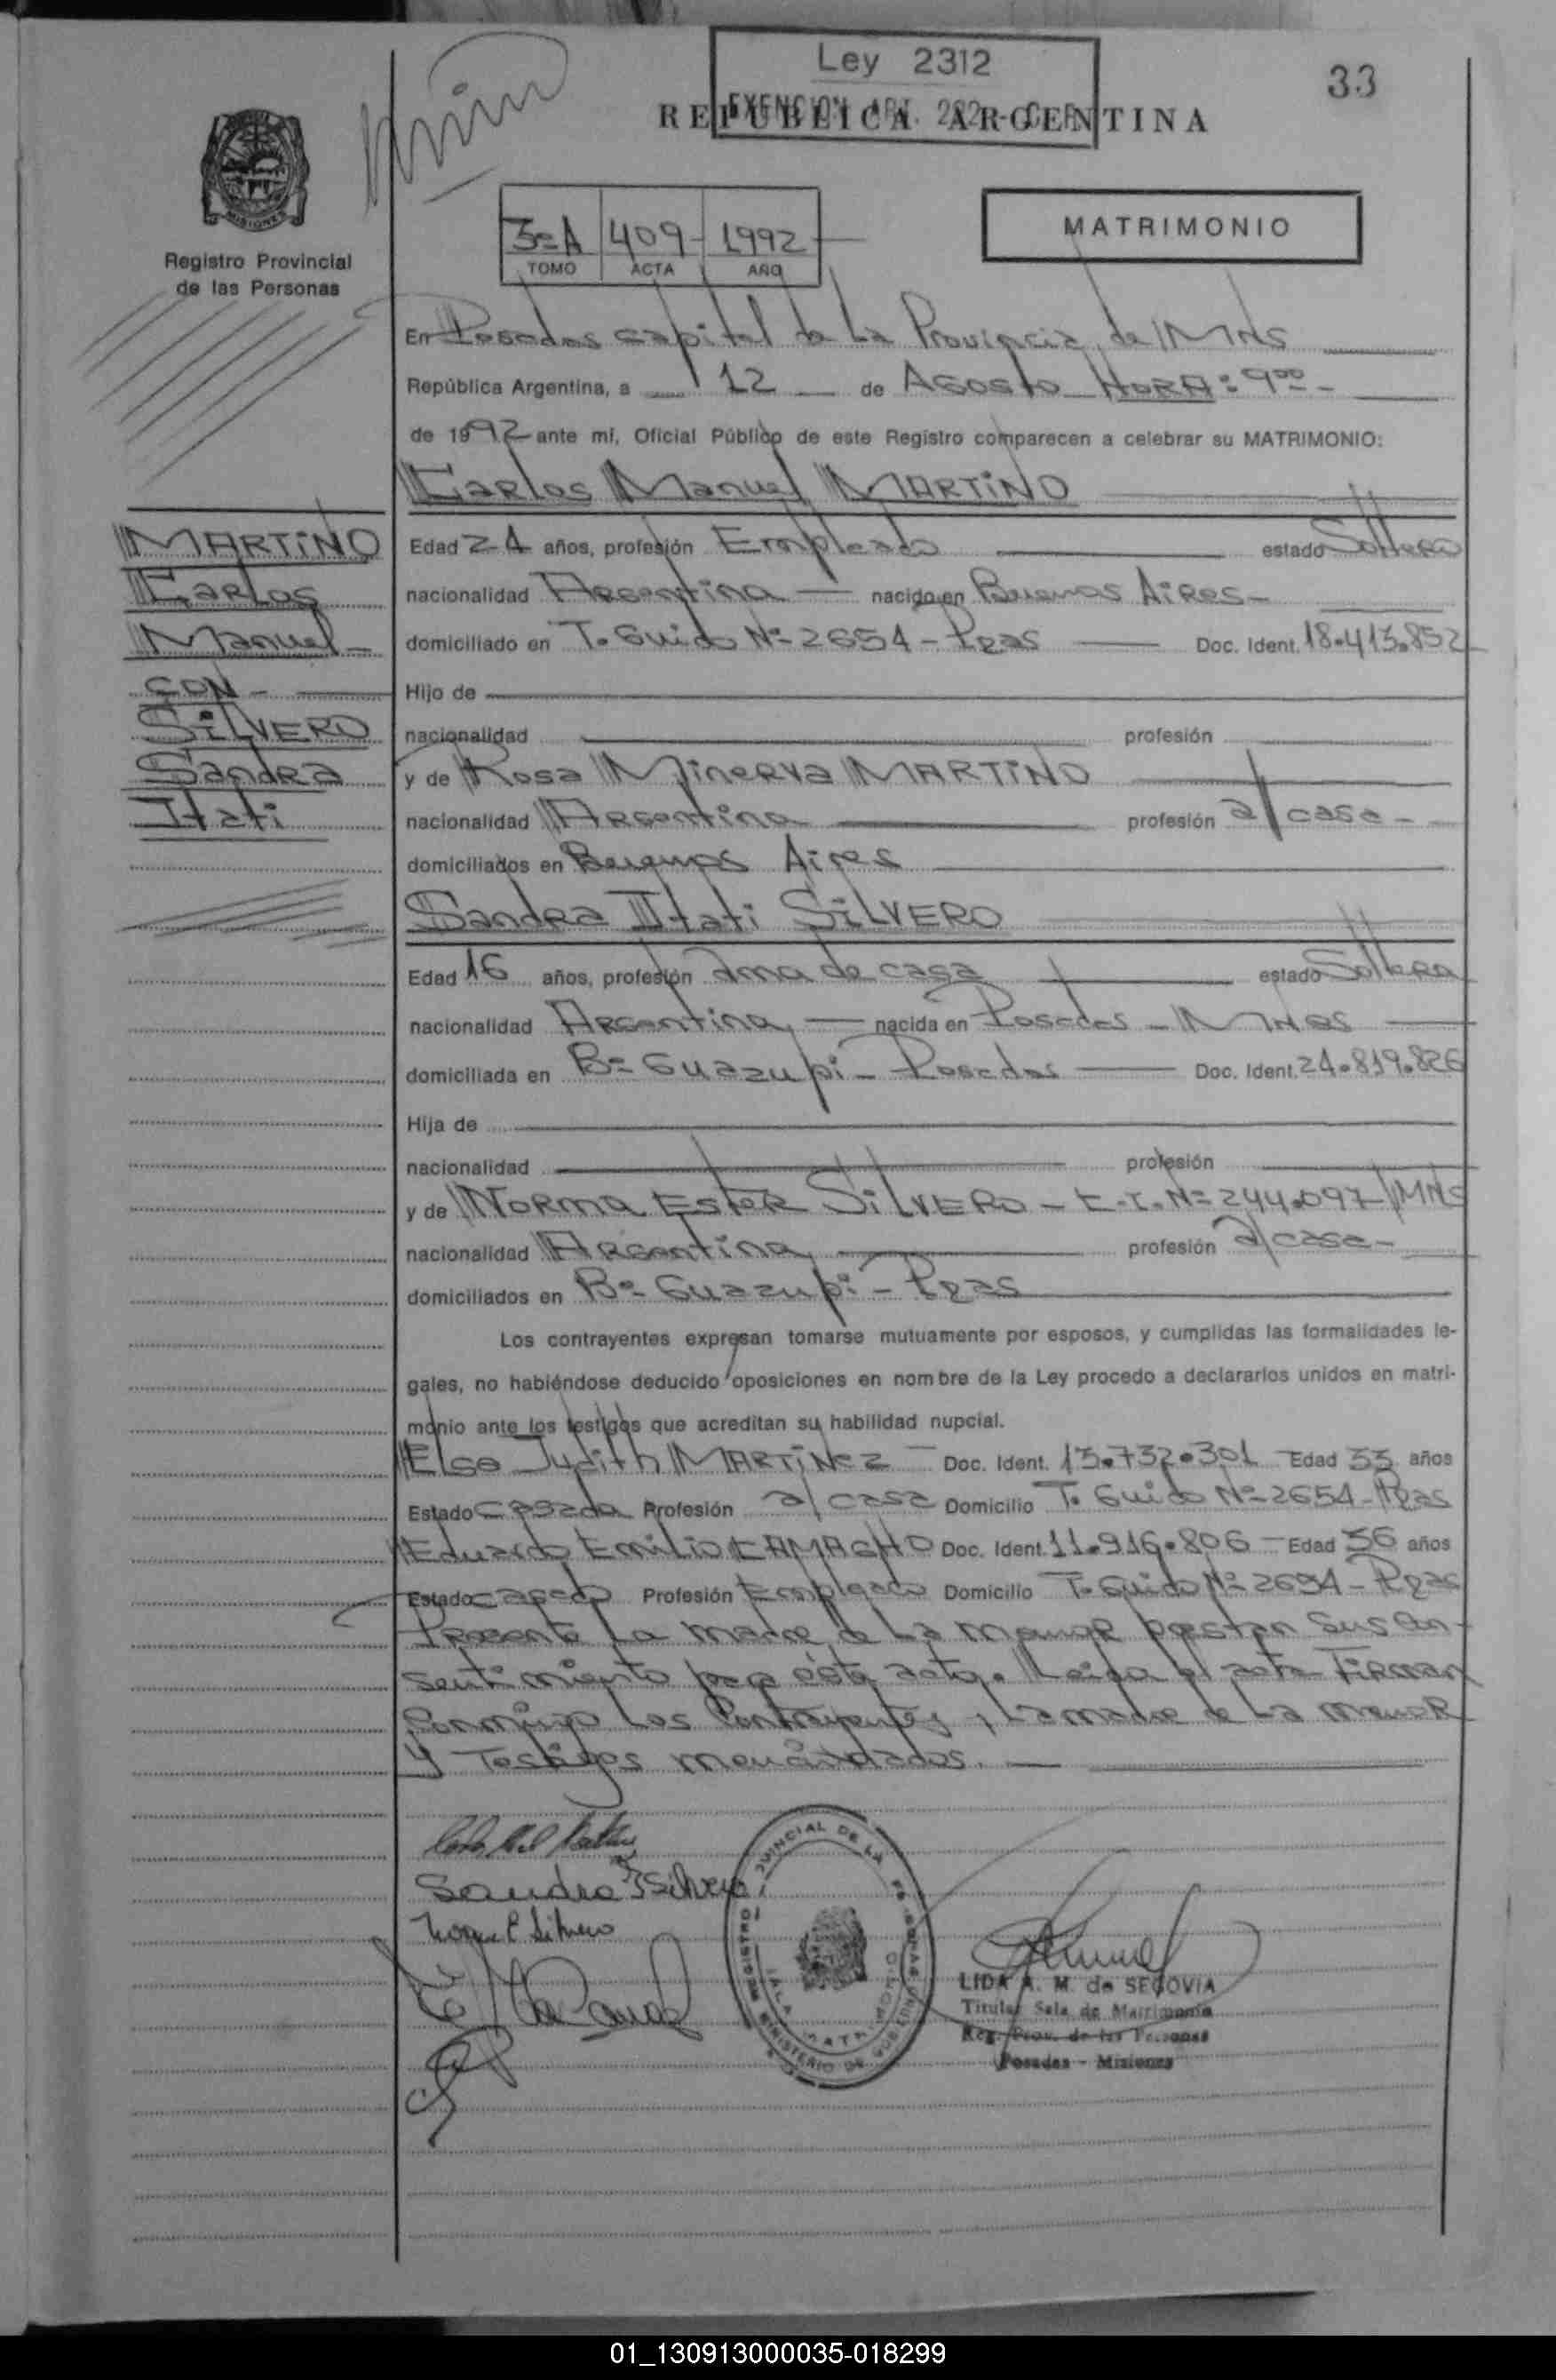 Ley 2312
EXENCION ART. 282 - C.F.
33
REPUBLICA ARGENTINA
MISIONES
Registro Provincial
de las Personas
3º A 409- 1992
TOMO ACTA AÑO
MATRIMONIO
En Posadas capital de La Provincia de MNS
República Argentina, a 12 de Agosto HORA: 9ºº-
de 1992 ante mí, Oficial Público de este Registro comparecen a celebrar su MATRIMONIO:
Carlos Manuel MARTINO
MARTINO
Carlos
Manuel-
CON-
SILVERO
Sandra
Itati
Edad 24 años, profesión Empleado estado Soltero
nacionalidad Argentina - nacido en Buenos Aires-
domiciliado en T. Guido Nº 2654 - Pdas Doc. Ident. 18.413.852
Hijo de
nacionalidad profesión
y de Rosa Minerva MARTINO
nacionalidad Argentina profesión a/casa -
domiciliados en Buenos Aires
Sandra Itati SILVERO
Edad 16 años, profesión ama de casa estado Soltera
nacionalidad Argentina - nacida en Posadas - Mnes
domiciliada en Bº Guazupi - Posadas Doc. Ident. 24.819.826
Hija de
nacionalidad profesión
y de Norma Ester SILVERO - C.I. Nº 244.097/MNS
nacionalidad Argentina profesión a/casa -
domiciliados en Bº Guazupi - Pdas
Los contrayentes expresan tomarse mutuamente por esposos, y cumplidas las formalidades le-
gales, no habiéndose deducido oposiciones en nombre de la Ley procedo a declararlos unidos en matri-
monio ante los testigos que acreditan su habilidad nupcial.
Elsa Judith MARTINEZ - Doc. Ident. 13.732.301 Edad 33 años
Estado Casada Profesión a/casa Domicilio T. Guido Nº 2654 - Pdas
Eduardo Emilio CAMACHO Doc. Ident. 11.916.806 - Edad 36 años
Estado casado Profesión Empleado Domicilio T. Guido Nº 2694 - Pdas
Presente La madre de La menor prestan sus con-
sentimiento para este acto. Leida el acta Firman
Conmigo Los Contrayentes, La madre de La menor
y Testigos mencionados.
Sandra I Silvero
Norma E Silvero
LIDA A. M. de SEGOVIA
Titular Sala de Matrimonio
Reg. Prov. de las Personas
Posadas - Misiones
01_130913000035-018299